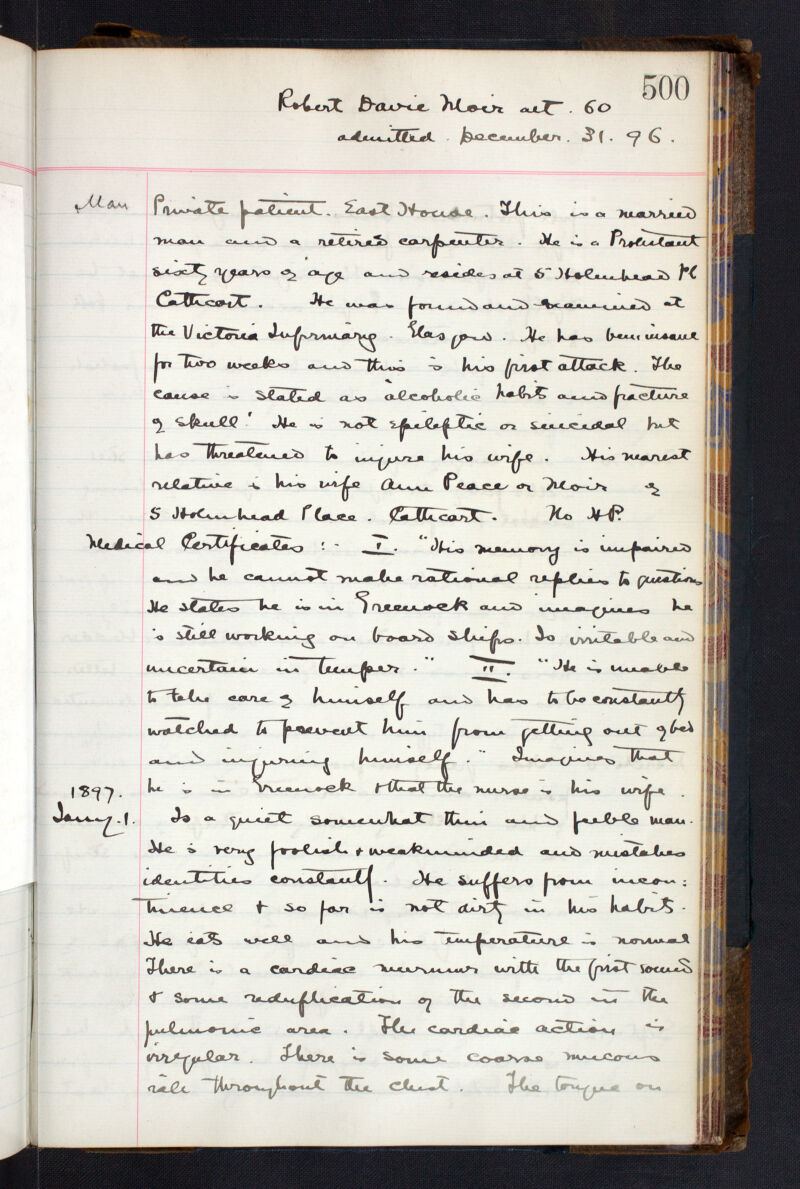 500
Robert Davie Moir aet. 60
admitted. December. 31. 96.
Man Private patient. East House. This is a married
man and a retired carpenter. He is a Protestant
sixty years of age and resides at 5 Holmhead Pl
Cathcart. He was found and examined at
the Victoria Infirmary. Glasgow. He has been insane
for two weeks and this is his first attack. The
cause is stated as 'alcoholic habits and fracture
of skull.' He is not epileptic or suicidal but
has threatened to injure his wife. His nearest
relative is his wife Ann Peace or Moir of
5 Holmhead Place. Cathcart. No H.P.
Medical Certificates :- I. "His memory is impaired
and he cannot make rational replies to questions
He states he is in Greenock and imagines he
is still working on board ships. Is irritable and
uncertain in temper." II. "He is unable
to take care of himself and has to be constantly
watched to prevent him from getting out of bed
and injuring himself." Imagines that
he is in Greenock & that the nurse is his wife.
1897.
Jany. 1. Is a quiet somewhat thin and feeble man.
He is very foolish & weakminded and mistakes
identities constantly. He suffers from incon:
tinence & so far is not dirty in his habits.
He eats well and his temperature is normal
There is a cardiac murmur with the first sound
& some reduplication of the second in the
pulmonic area. The cardiac action is
irregular. There is some coarse mucous
râle throughout the chest. The tongue on